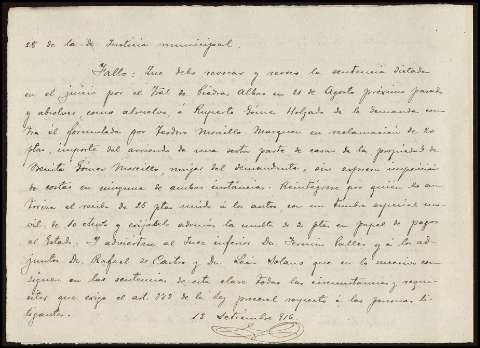 28 de la de Justicia municipal.
Fallo: Que debo revocar y revoco la sentencia dictada
en el juicio por el Tbal de Piedras Albas en 28 de Agosto próximo pasado
y absolver como absuelvo, á Ruperto Gómez Holgado de la demanda con
tra él formulada por Isidoro Morcillo Marques en reclamación de 20
ptas, importe del arriendo de una sexta parte de casa de la propiedad de
Benita Gómez Morcillo, mujer del demandante, sin expresa imposición
de costas en ninguna de ambas instancias. Reintégrese por quien
el recibo de 25 ptas unido á los autos, con un timbre especial mó
vil de 10 cts y además la multa de 2 ptas en papel de pagos
al Estado. Y adviértase al Juez inferior Dn. Fermín y á los ad-
juntos Dn. Rafael de Castro y Dn. León Solano que en lo sucesivo con
signen en las sentencias de esta clase todas las circunstancias y requi-
sitos que exige el art. 372 de la ley procesal respecto á las personas li-
tigantes.
13 Setiembre 916.